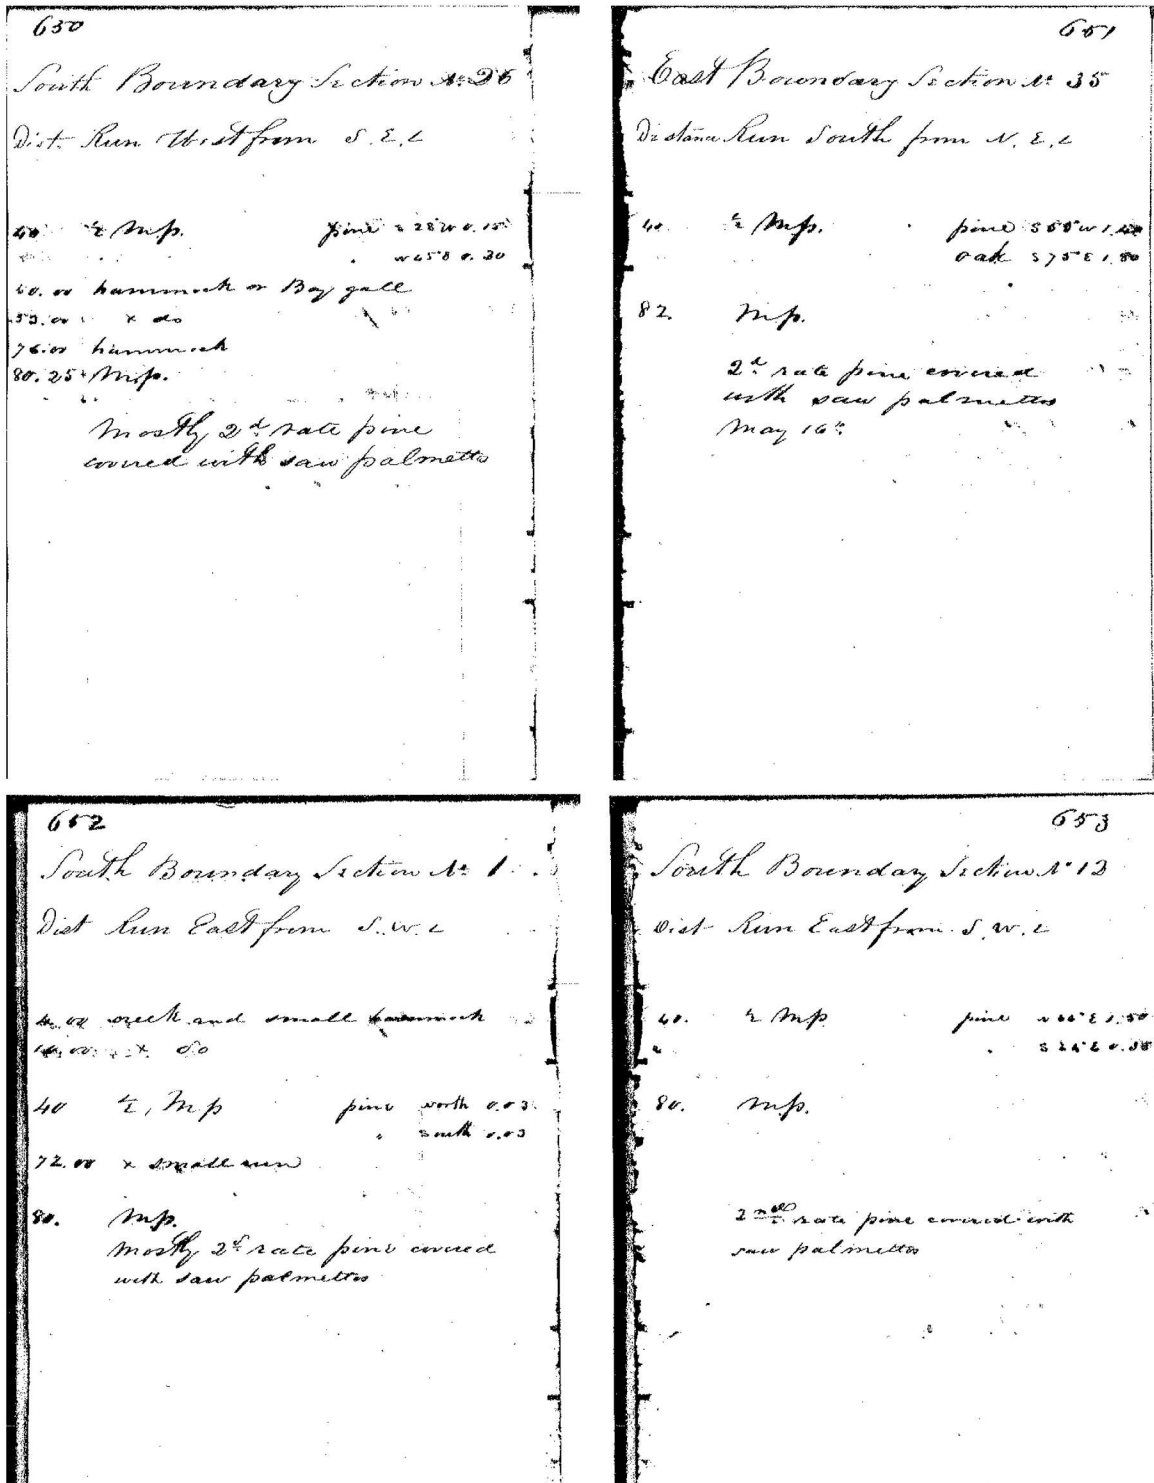 650
South Boundary Section No 26
Dist. Run West from S. E. C
40 ½ M.p. pine
40.00 hammock or Bay gall
53.00 x do
76.00 hammock
80.25 M.p.
Mostly 2d rate pine
covered with saw palmetto
651
East Boundary Section No 35
Distance Run South from N. E. C
40 ½ M.p. pine
oak S 75 E 1.80
82. M.p.
2d rate pine covered
with saw palmettos
May 16th
652
South Boundary Section No 1
Dist Run East from S. W. C
4.00 creek and small hammock
x do
40 ½ M p pine north 0.03
" south 0.03
72.00 x small run
80. M.p.
Mostly 2d rate pine covered
with saw palmettos
653
South Boundary Section No 12
Dist Run East from S. W. C
40. ½ M p pine
80. M.p.
2nd rate pine covered with
saw palmettos